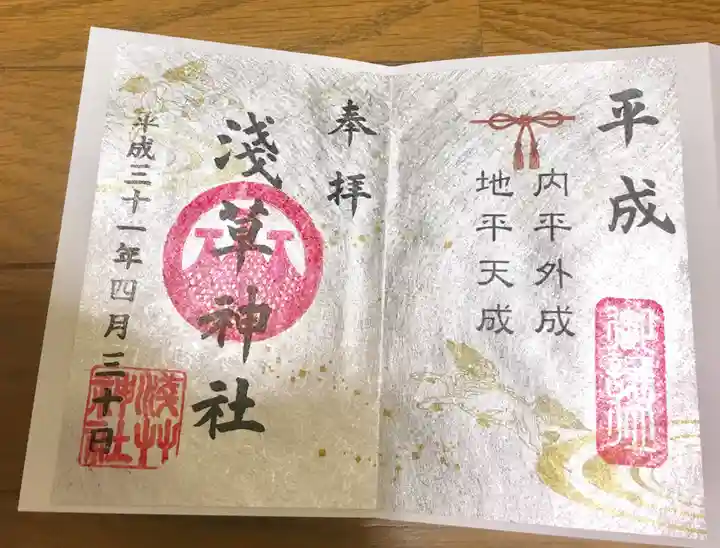 平成
内平外成
地平天成
奉拝
淺草神社
平成三十一年四月三十日
淺草
神社